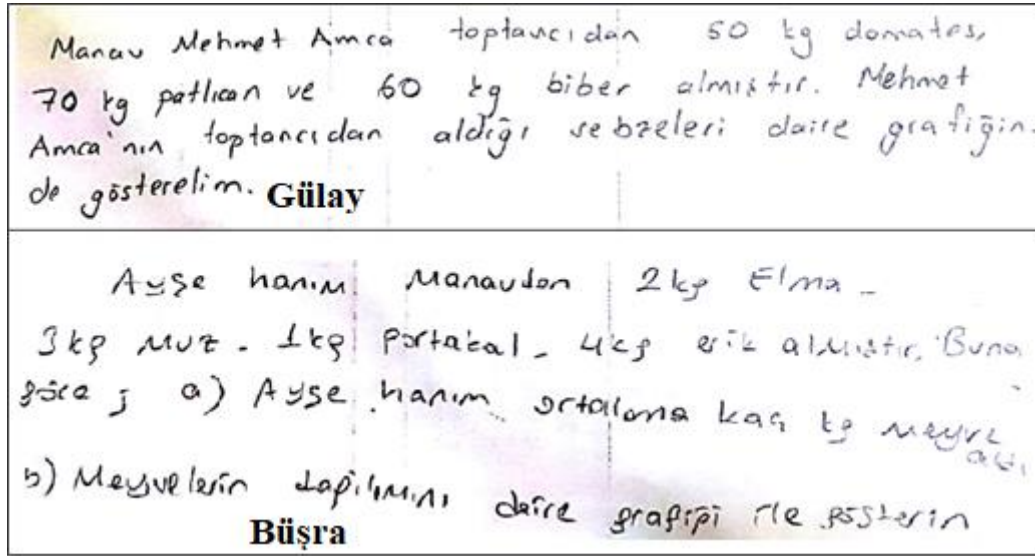 Manav Mehmet Amca toptancıdan 50 kg domates,
70 kg patlıcan ve 60 kg biber almıştır. Mehmet
Amca'nın toptancıdan aldığı sebzeleri daire grafiğin
de gösterelim. Gülay
Ayşe hanım Manavdan 2kg Elma -
3kg muz - 1kg portakal - 4kg erik almıştır. Buna
göre ; a) Ayşe hanım ortalama kaç kg meyve
aldı
b) Meyvelerin dağılımını daire grafiği ile gösterin
Büşra